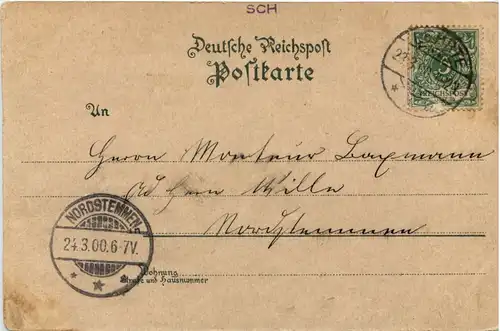 SCH
Deutsche Reichspost
Postkarte
REICHSPOST
An
Herrn Monteur Baxmann
Ad Herrn Wille
Nordstemmen
NORDSTEMMEN
24.3.00.6-7V.
Wohnung
Straße und Hausnummer